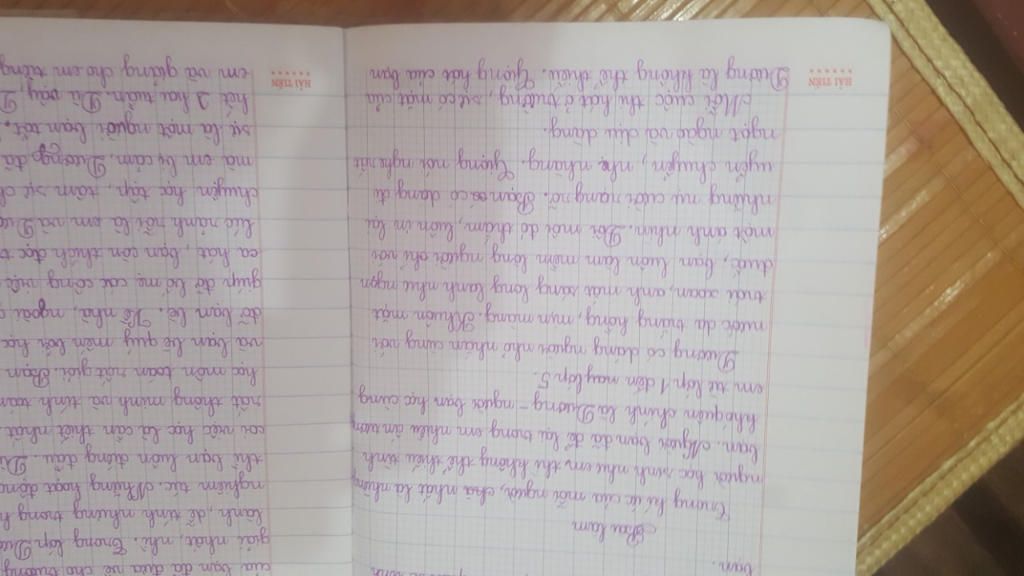 bạn.
Bài làm
Trong kí ức của mỗi người, chả nhất là những
người học sinh như em thì không thể thiếu tình
bạn. Người bạn đã để lại trong em nhiều ấn tượng
khó quên chính là Dương - người bạn học cùng
em từ lớp 1 đến nay lớp 5.
Dương có dáng người nhỏ nhắn cùng với
nước da trắng hồng, mịn màng. Khuôn mặt
trái xoan, ánh mắt sáng long lanh như ngọn
đuốc, bạn luôn làm mềm lòng người chỉ với
một ánh nhìn. Đôi môi đỏ thắm, luôn in lại
những nụ cười rạng rỡ. Bạn có dáng đi
uyển chuyển, nhẹ nhàng. Giọng nói nghe rất
ngọt ngào và dịu dàng.
Mỗi cuộc thi hát ở trường, sự có mặt của
Dương là không thể thiếu. Giọng hát của bạn
HẢI TIẾN
của bạn đã đưa về cho trường
giải nhất, nhì. Trong lớp
lành, dễ tính nhưng trong
nghiêm túc. Những hoạt động
thì bạn luôn đứng đầu.
coi việc học là cần thiết nhất
rất thông minh và tính toán
học môn toán rất giỏi. Bạn
và bạn bè quý mến bởi học
đỡ bạn bè. Về nhà, ngoài
giúp đỡ bố mẹ các công việc
ca hát, bạn còn thích đọc
lúc rảnh rỗi là em và
chuyện học tập, tâm sự
mà em bị cảm, Dương đã
sự là một người bạn tốt.
hết 2 hai tuần. Dù vậy,
em và giảng cho em từng
HẢI TIẾN